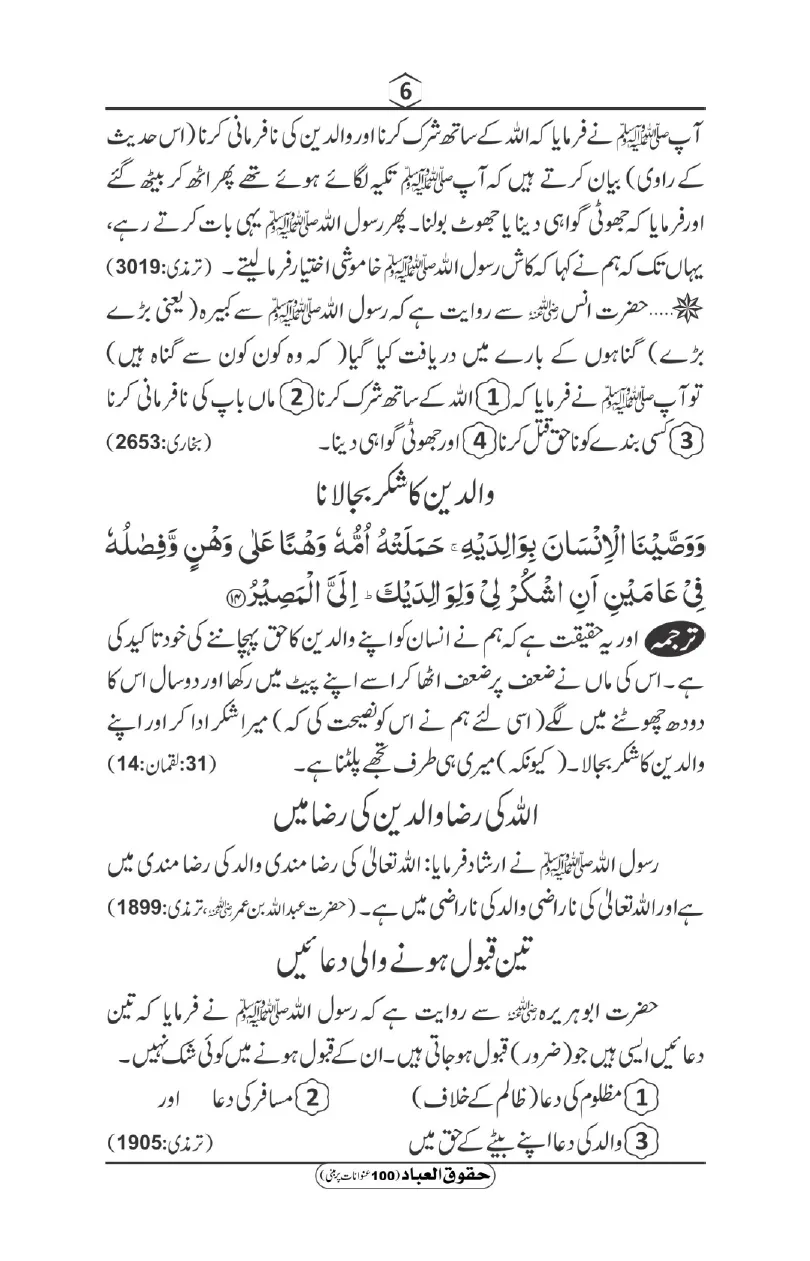 6
آپ ﷺ نے فرمایا کہ اللہ کے ساتھ شرک کرنا اور والدین کی نافرمانی کرنا (اس حدیث
کے راوی) بیان کرتے ہیں کہ آپ ﷺ تکیہ لگائے ہوئے تھے پھر اٹھ کر بیٹھ گئے
اور فرمایا کہ جھوٹی گواہی دینا یا جھوٹ بولنا۔ پھر رسول اللہ ﷺ یہی بات کرتے رہے،
یہاں تک کہ ہم نے کہا کہ کاش رسول اللہ ﷺ خاموشی اختیار فرما لیتے۔ (ترمذی:3019)
.....حضرت انس رضی اللہ عنہ سے روایت ہے کہ رسول اللہ ﷺ سے کبیرہ (یعنی بڑے
بڑے) گناہوں کے بارے میں دریافت کیا گیا (کہ وہ کون کون سے گناہ ہیں)
تو آپ ﷺ نے فرمایا کہ 1 اللہ کے ساتھ شرک کرنا 2 ماں باپ کی نافرمانی کرنا
3 کسی بندے کو ناحق قتل کرنا 4 اور جھوٹی گواہی دینا۔ (بخاری:2653)
والدین کا شکر بجا لانا
وَوَصَّيْنَا الْاِنْسَانَ بِوَالِدَيْهِ ۚ حَمَلَتْهُ اُمُّهٗ وَهْنًا عَلٰى وَهْنٍ وَّفِصٰلُهٗ
فِيْ عَامَيْنِ اَنِ اشْكُرْ لِيْ وَلِوَالِدَيْكَ ؕ اِلَيَّ الْمَصِيْرُ ۝۱۴
ترجمہ اور یہ حقیقت ہے کہ ہم نے انسان کو اپنے والدین کا حق پہچاننے کی خود تاکید کی
ہے۔ اس کی ماں نے ضعف پر ضعف اٹھا کر اسے اپنے پیٹ میں رکھا اور دو سال اس کا
دودھ چھوٹنے میں لگے (اسی لئے ہم نے اس کو نصیحت کی کہ) میرا شکر ادا کر اور اپنے
والدین کا شکر بجا لا۔ (کیونکہ) میری ہی طرف تجھے پلٹنا ہے۔ (31:لقمان:14)
اللہ کی رضا والدین کی رضا میں
رسول اللہ ﷺ نے ارشاد فرمایا: اللہ تعالیٰ کی رضا مندی والد کی رضا مندی میں
ہے اور اللہ تعالیٰ کی ناراضی والد کی ناراضی میں ہے۔ (حضرت عبداللہ بن عمر رضی اللہ عنہ، ترمذی:1899)
تین قبول ہونے والی دعائیں
حضرت ابوہریرہ رضی اللہ عنہ سے روایت ہے کہ رسول اللہ ﷺ نے فرمایا کہ تین
دعائیں ایسی ہیں جو (ضرور) قبول ہو جاتی ہیں۔ ان کے قبول ہونے میں کوئی شک نہیں۔
1 مظلوم کی دعا (ظالم کے خلاف) 2 مسافر کی دعا اور
3 والد کی دعا اپنے بیٹے کے حق میں (ترمذی:1905)
حقوق العباد (100 عنوانات پر مبنی)